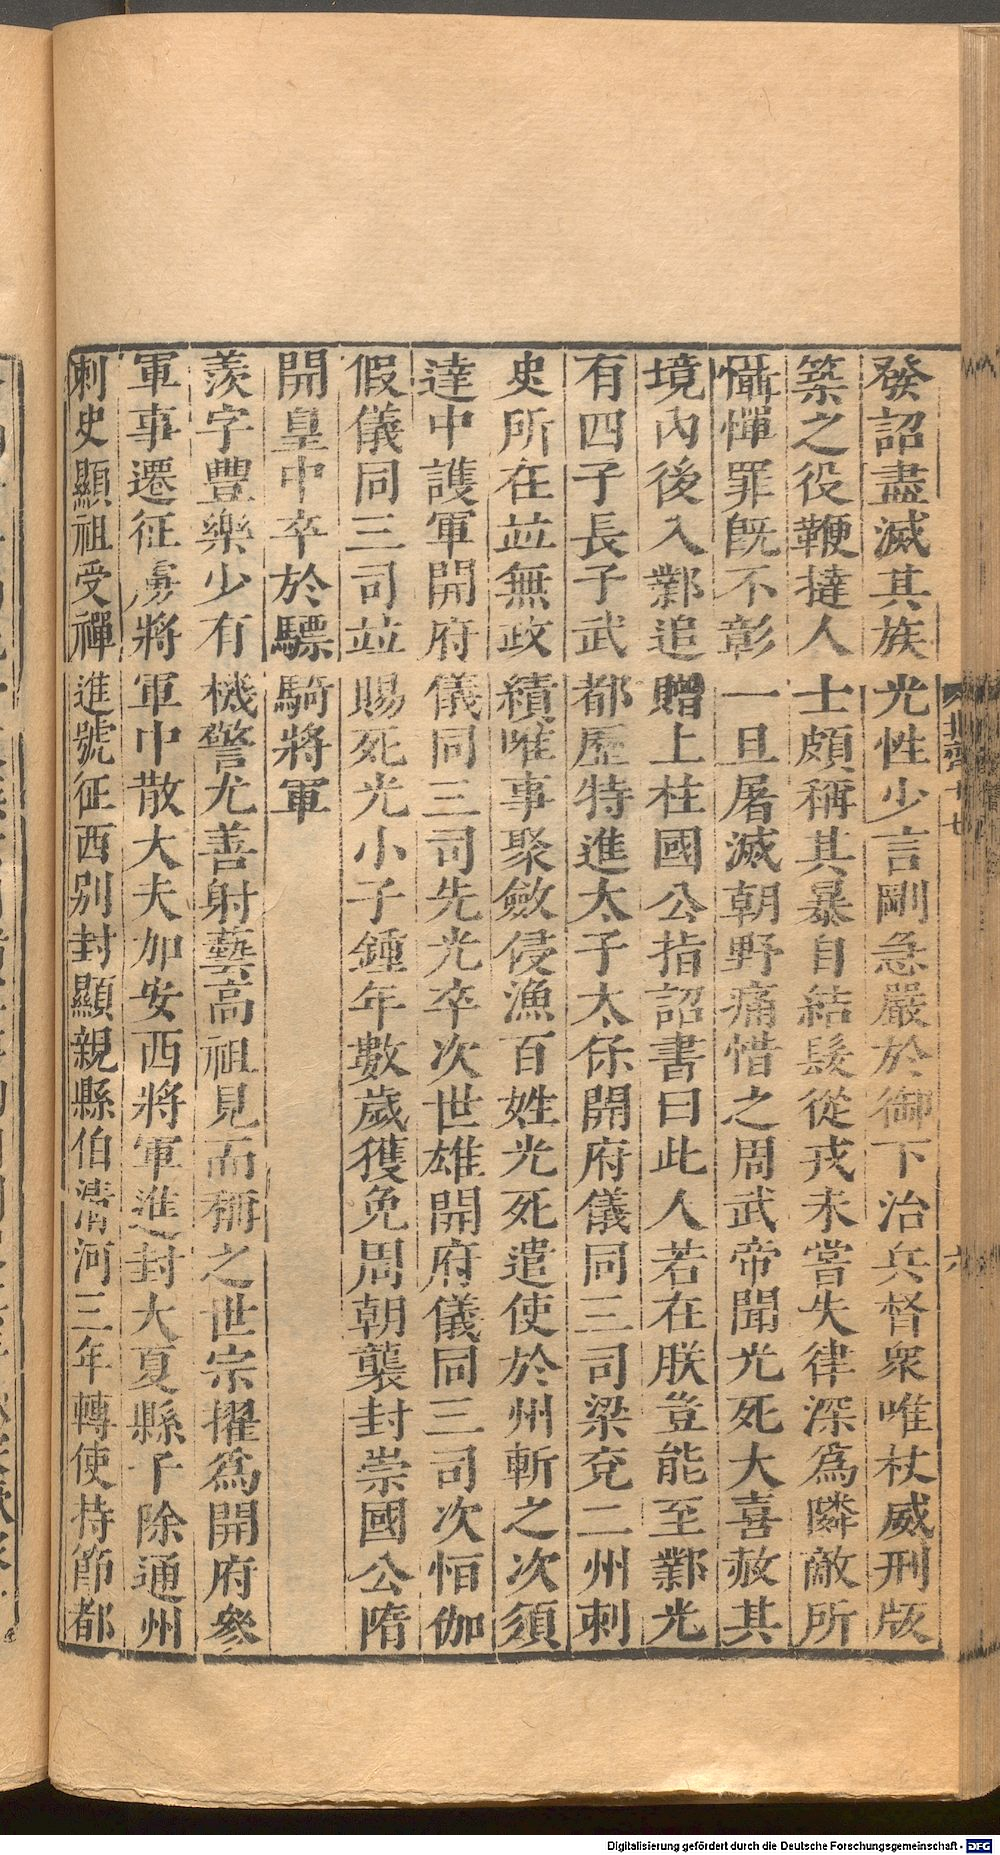 發詔盡滅其族光性少言剛急嚴於御下治兵督衆唯杖威刑版
築之役鞭撻人士頗稱其暴自結髮從戎未嘗失律深爲隣敵所
懾憚罪旣不彰一旦屠滅朝野痛惜之周武帝聞光死大喜赦其
境內後入鄴追贈上柱國公指詔書曰此人若在朕豈能至鄴光
有四子長子武都歷特進太子太保開府儀同三司梁兗二州刺
史所在竝無政績唯事聚斂侵漁百姓光死遣使於州斬之次須
達中護軍開府儀同三司先光卒次世雄開府儀同三司次恒伽
假儀同三司竝賜死光小子鍾年數歲獲免周朝襲封崇國公隋
開皇中卒於驃騎將軍
羨字豐樂少有機警尤善射藝高祖見而稱之世宗擢爲開府參
軍事遷征虜將軍中散大夫加安西將軍進封大夏縣子除通州
刺史顯祖受禪進號征西別封顯親縣伯淸河三年轉使持節都
北齊十七
六
Digitalisierung gefördert durch die Deutsche Forschungsgemeinschaft - DFG